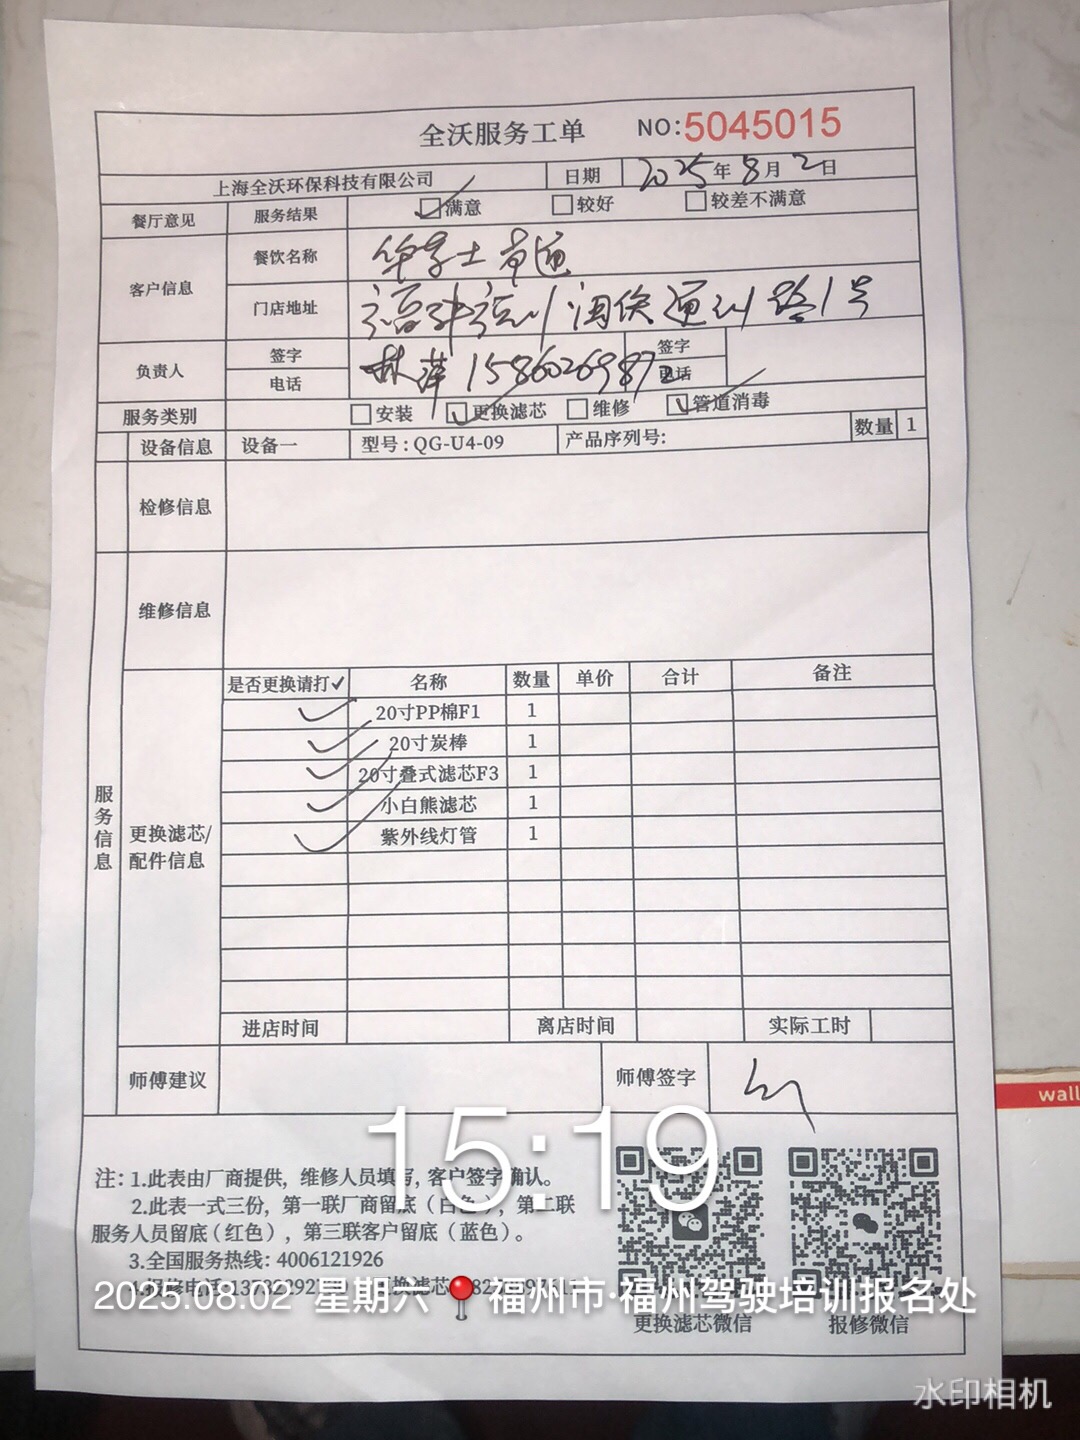 全沃服务工单 NO:5045015
上海全沃环保科技有限公司 日期 2025年8月2日
餐厅意见 服务结果 满意 较好 较差不满意
客户信息 餐饮名称 华莱士
门店地址 福建福州闽侯通洲路1号
负责人 签字 林萍 1586026987 签字
电话 电话
服务类别 安装 更换滤芯 维修 管道消毒
设备信息 设备一 型号:QG-U4-09 产品序列号: 数量 1
检修信息
维修信息
服务信息
更换滤芯/配件信息
是否更换请打✓ 名称 数量 单价 合计 备注
✓ 20寸PP棉F1 1
✓ 20寸炭棒 1
✓ 20寸叠式滤芯F3 1
✓ 小白熊滤芯 1
✓ 紫外线灯管 1
进店时间 离店时间 实际工时
师傅建议 师傅签字
15:19
注：1.此表由厂商提供，维修人员填写，客户签字确认。
2.此表一式三份，第一联厂商留底（白色），第二联
服务人员留底（红色），第三联客户留底（蓝色）。
3.全国服务热线：4006121926
4.报修电话
2025.08.02 星期六 福州市·福州驾驶培训报名处
更换滤芯微信 报修微信
wall
水印相机